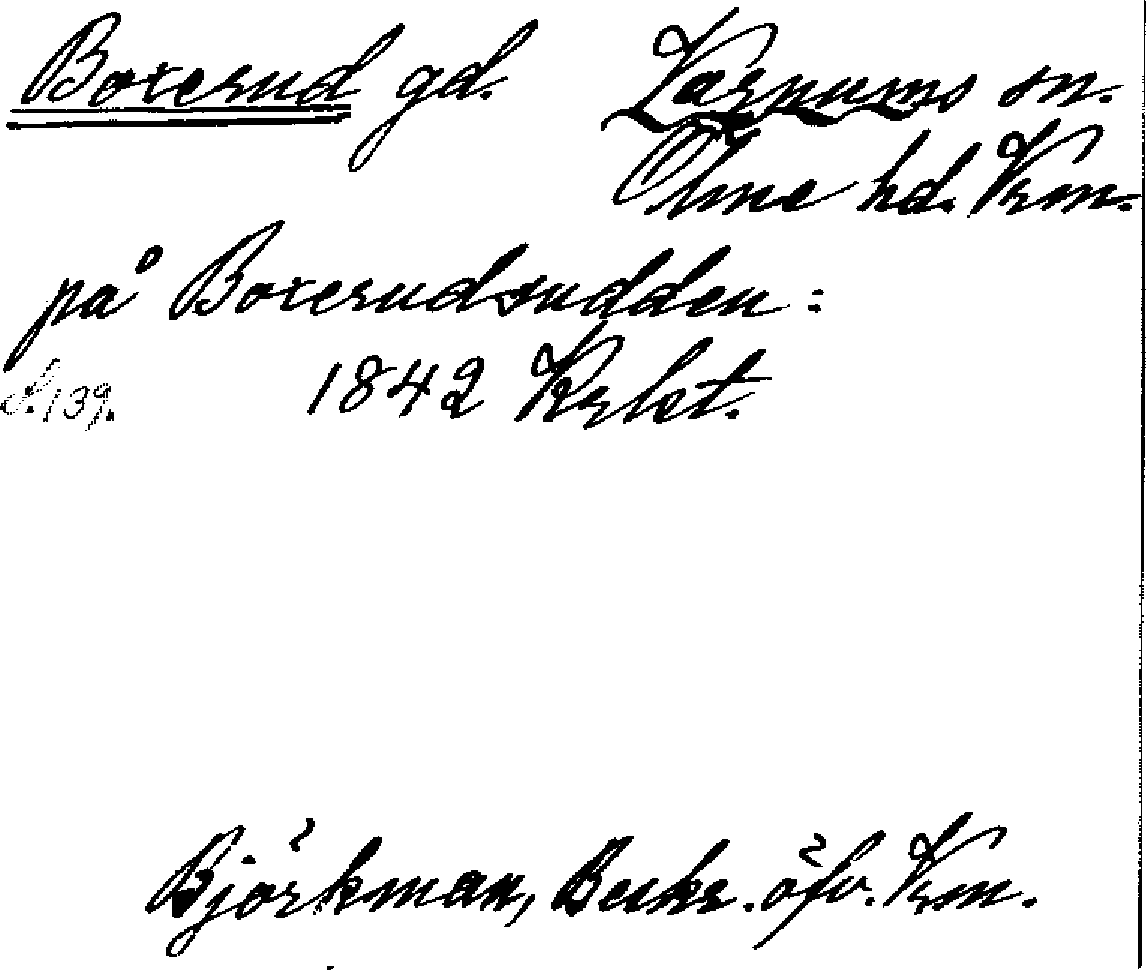 Boxerud gd. Varnums sn.
Ölme hd. Vrm.
på Boxerudsudden:
S. 139. 1842 Krlst.
Björkman, Beskr. öfv. Vrm.